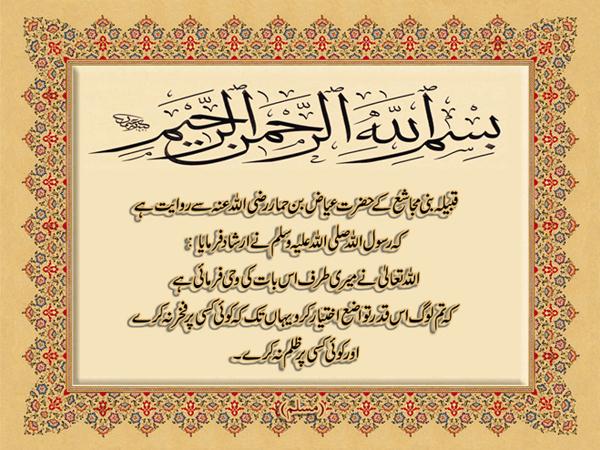 بسم الله الرحمن الرحيم
قبیلہ بنی مجاشع کے حضرت عیاض بن حمار رضی اللہ عنہ سے روایت ہے
کہ رسول اللہ صلی اللہ علیہ وسلم نے ارشاد فرمایا :
اللہ تعالیٰ نے میری طرف اس بات کی وحی فرمائی ہے
کہ تم لوگ اس قدر تواضع اختیار کرو یہاں تک کہ کوئی کسی پر فخر نہ کرے
اور کوئی کسی پر ظلم نہ کرے۔
(مسلم)